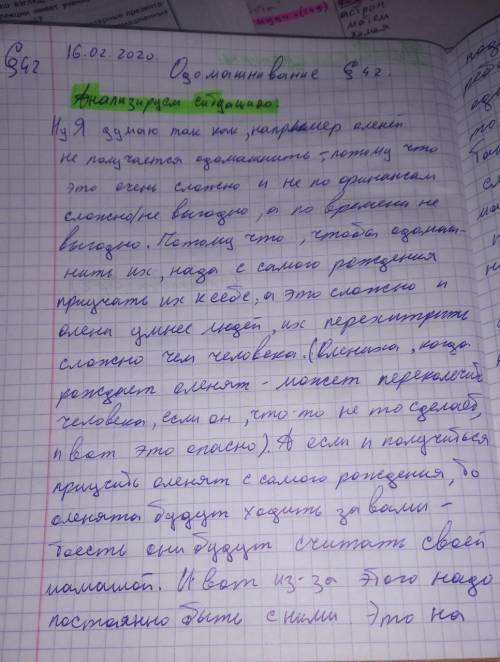 §42 16.02.2020.
Одомашнивание §42.
Анализируем ситуацию:
Ну я думаю так как, например оленей
не получается одомашнить - потому что
это очень сложно и не по финансам
сложно/не выгодно, а по времени не
выгодно. Потому что, чтобы одомаш-
нить их, надо с самого рождения
приучать их к себе, а это сложно и
олени умнее людей, их перехитрить
сложно чем человека. (Олениха, когда
рождает оленят - может перекалечить
человека, если он, что-то не то сделает,
и вот это опасно). А если и получиться
приучить оленят с самого рождения, то
оленята будут ходить за вами -
тоесть они будут считать своей
мамашой. И вот из-за этого надо
постоянно быть с ними. Это на